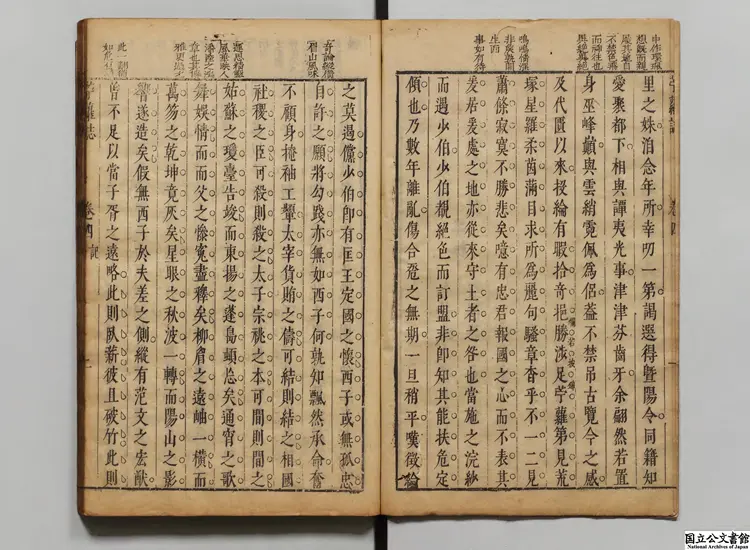 中作環珮
想既而親
履其地自
不禁色飛
而神往也
里之姝洎念年所幸叨一第謁選得暨陽令同籍知
愛聚都下相與譚夷光事津津芬齒牙余翩然若置
身巫峰巔與雲綃霓佩為侶蓋不禁弔古覽今之感
及代匱以來授綸有暇拾奇挹勝涉足苧蘿第見荒
塚星羅柔茵滿目求所為麗句騷章杳乎不一二見
蕭條寂寞不勝悲矣噫有忠君報國之心而不表其
爰居爰處之地亦從來守土者之咎也當施之浣紗
而遇少伯少伯覩絕色而訂盟非卽知其能扶危定
傾也乃數年離亂傷合巹之無期一旦稍平嘆徵綸
奇論絕倒
眉山風味
之莫遏儻少伯卽有匡王定國之懷西子或無孤忠
自許之願將勾踐亦無如西子何孰知飄然承命奮
不顧身掩袖工顰太宰貨賂之儔可結則結之相國
社稷之臣可殺則殺之太子宗祧之本可間則間之
姑蘇之瓊臺告竣而東揚之蓬島頓忘矣通宵之歌
舞娛情而而父之慘寃盡釋矣柳眉之遠岫一橫而
萬笏之乾坤竟灰矣星眼之秋波一轉而陽山之影
響遂造矣假無西子於夫差之側縱有范文之宏猷
曾不足以當子胥之遠略此則臥薪彼且破竹此則
苧蘿誌 卷四
国立公文書館
National Archives of Japan